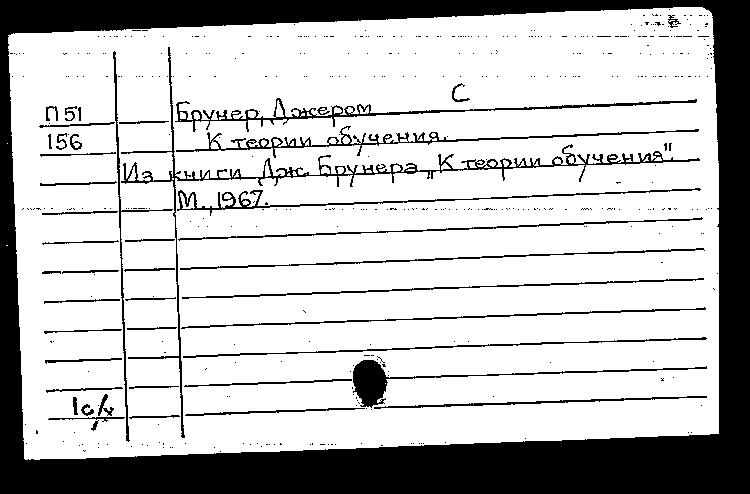 С
П51 Брунер, Джером
156 К теории обучения.
Из книги Дж. Брунера „К теории обучения".
М., 1967.
1с/х